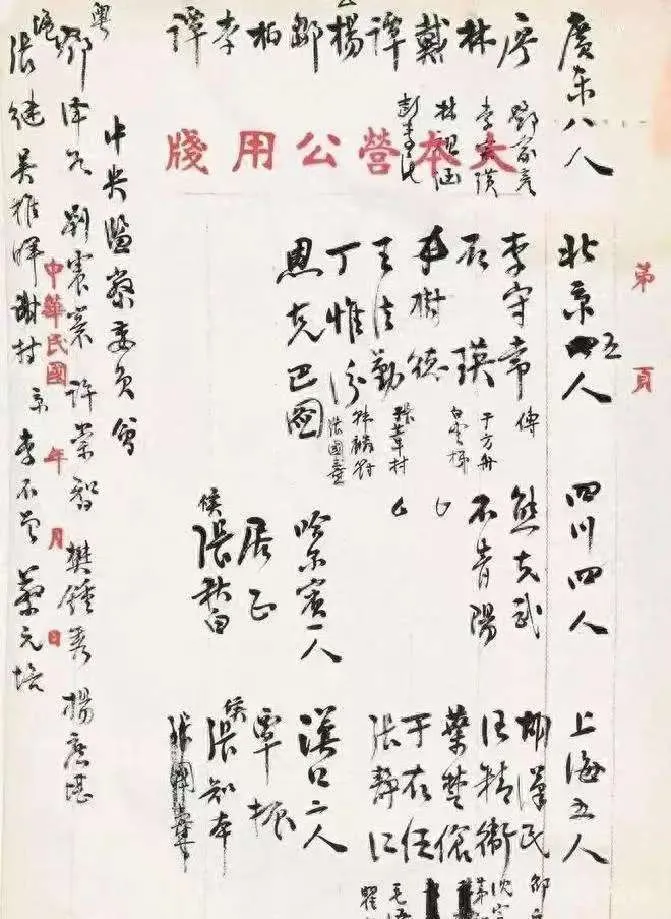 廣東八人
廖
林
戴
譚
楊
鄒
柏
李
譚
鄧家彥
李宗黃
林祖涵
彭素民
大本營公用牋
第 頁
北京五人
李守常
石瑛
李樹德
王法勤
丁惟汾
恩克巴圖
傅
于方舟
白雲梯
張葦村
韓麟符
張國燾
四川四人
熊克武
石青陽
哈尔賓一人
居正
候
張秋白
上海五人
胡漢民
汪精衛
葉楚傖
于右任
張靜江
邵
沈
毛澤
瞿
漢口二人
覃振
候
張知本
張國燾
中央監察委員會
粵
鄧澤如 劉震寰 許崇智 樊鍾秀 楊庶堪
滬
張繼 吳稚暉 謝持 京 李石曾 蔡元培
中華民國 年 月 日